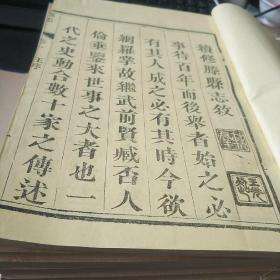 續修滕縣志敘
事待百年而後舉者始之必
有其人成之必有其時今欲
網羅掌故繼武前賢臧否人
倫垂鑒來世事之大者也一
代之史動合數十家之傳述